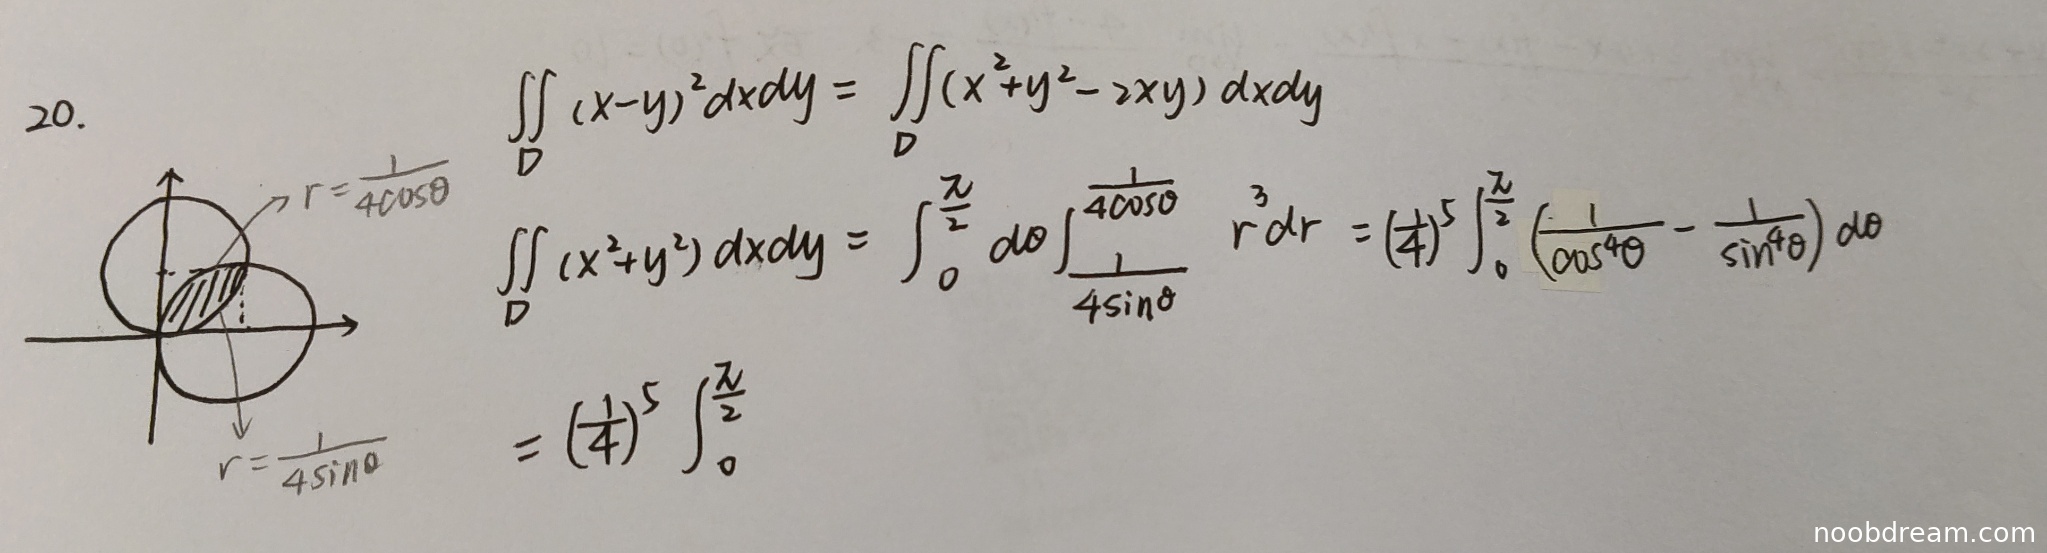 20.
∬_D (x-y)²dxdy = ∬_D (x²+y²-2xy) dxdy
r = 1/(4cosθ)
∬_D (x²+y²) dxdy = ∫_0^{π/2} dθ ∫_{1/(4sinθ)}^{1/(4cosθ)} r³dr = (1/4)^5 ∫_0^{π/2} (1/cos⁴θ - 1/sin⁴θ) dθ
= (1/4)^5 ∫_0^{π/2}
r = 1/(4sinθ)
noobdream.com